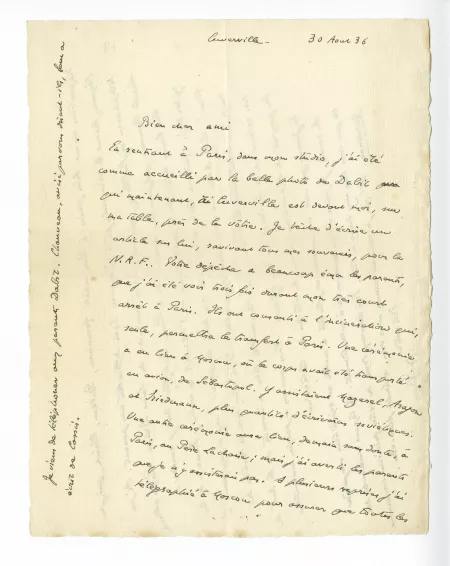 Cuverville - 30 Aout 36
Bien cher ami
En rentrant à Paris, dans mon studio, j'ai été
comme accueilli par la belle photo de Dabit
qui maintenant, à Cuverville est devant moi, sur
ma table, près de la vôtre. Je tâche d'écrire un
article sur lui, ravivant tous mes souvenirs, pour la
N.R.F. Votre dépêche a beaucoup ému les parents,
que j'ai été voir trois fois durant mon très court
arrêt à Paris. Ils ont consenti à l'incinération qui,
seule, permettra le transfert à Paris. Une cérémonie
a eu lieu à Moscou, où le corps avait été transporté
en avion, de Sébastopol. Y assistaient Masereel, Aragon
et Friedmann, plus quantité d'écrivains soviétiques.
Une autre cérémonie aura lieu, demain sans doute, à
Paris, au Père Lachaise ; mais j'ai averti les parents
que je n'y assisterais pas. A plusieurs reprises j'ai
télégraphié à Moscou pour assurer que toutes les
Je viens de téléphoner aux parents Dabit. Chauveau,
écrit de